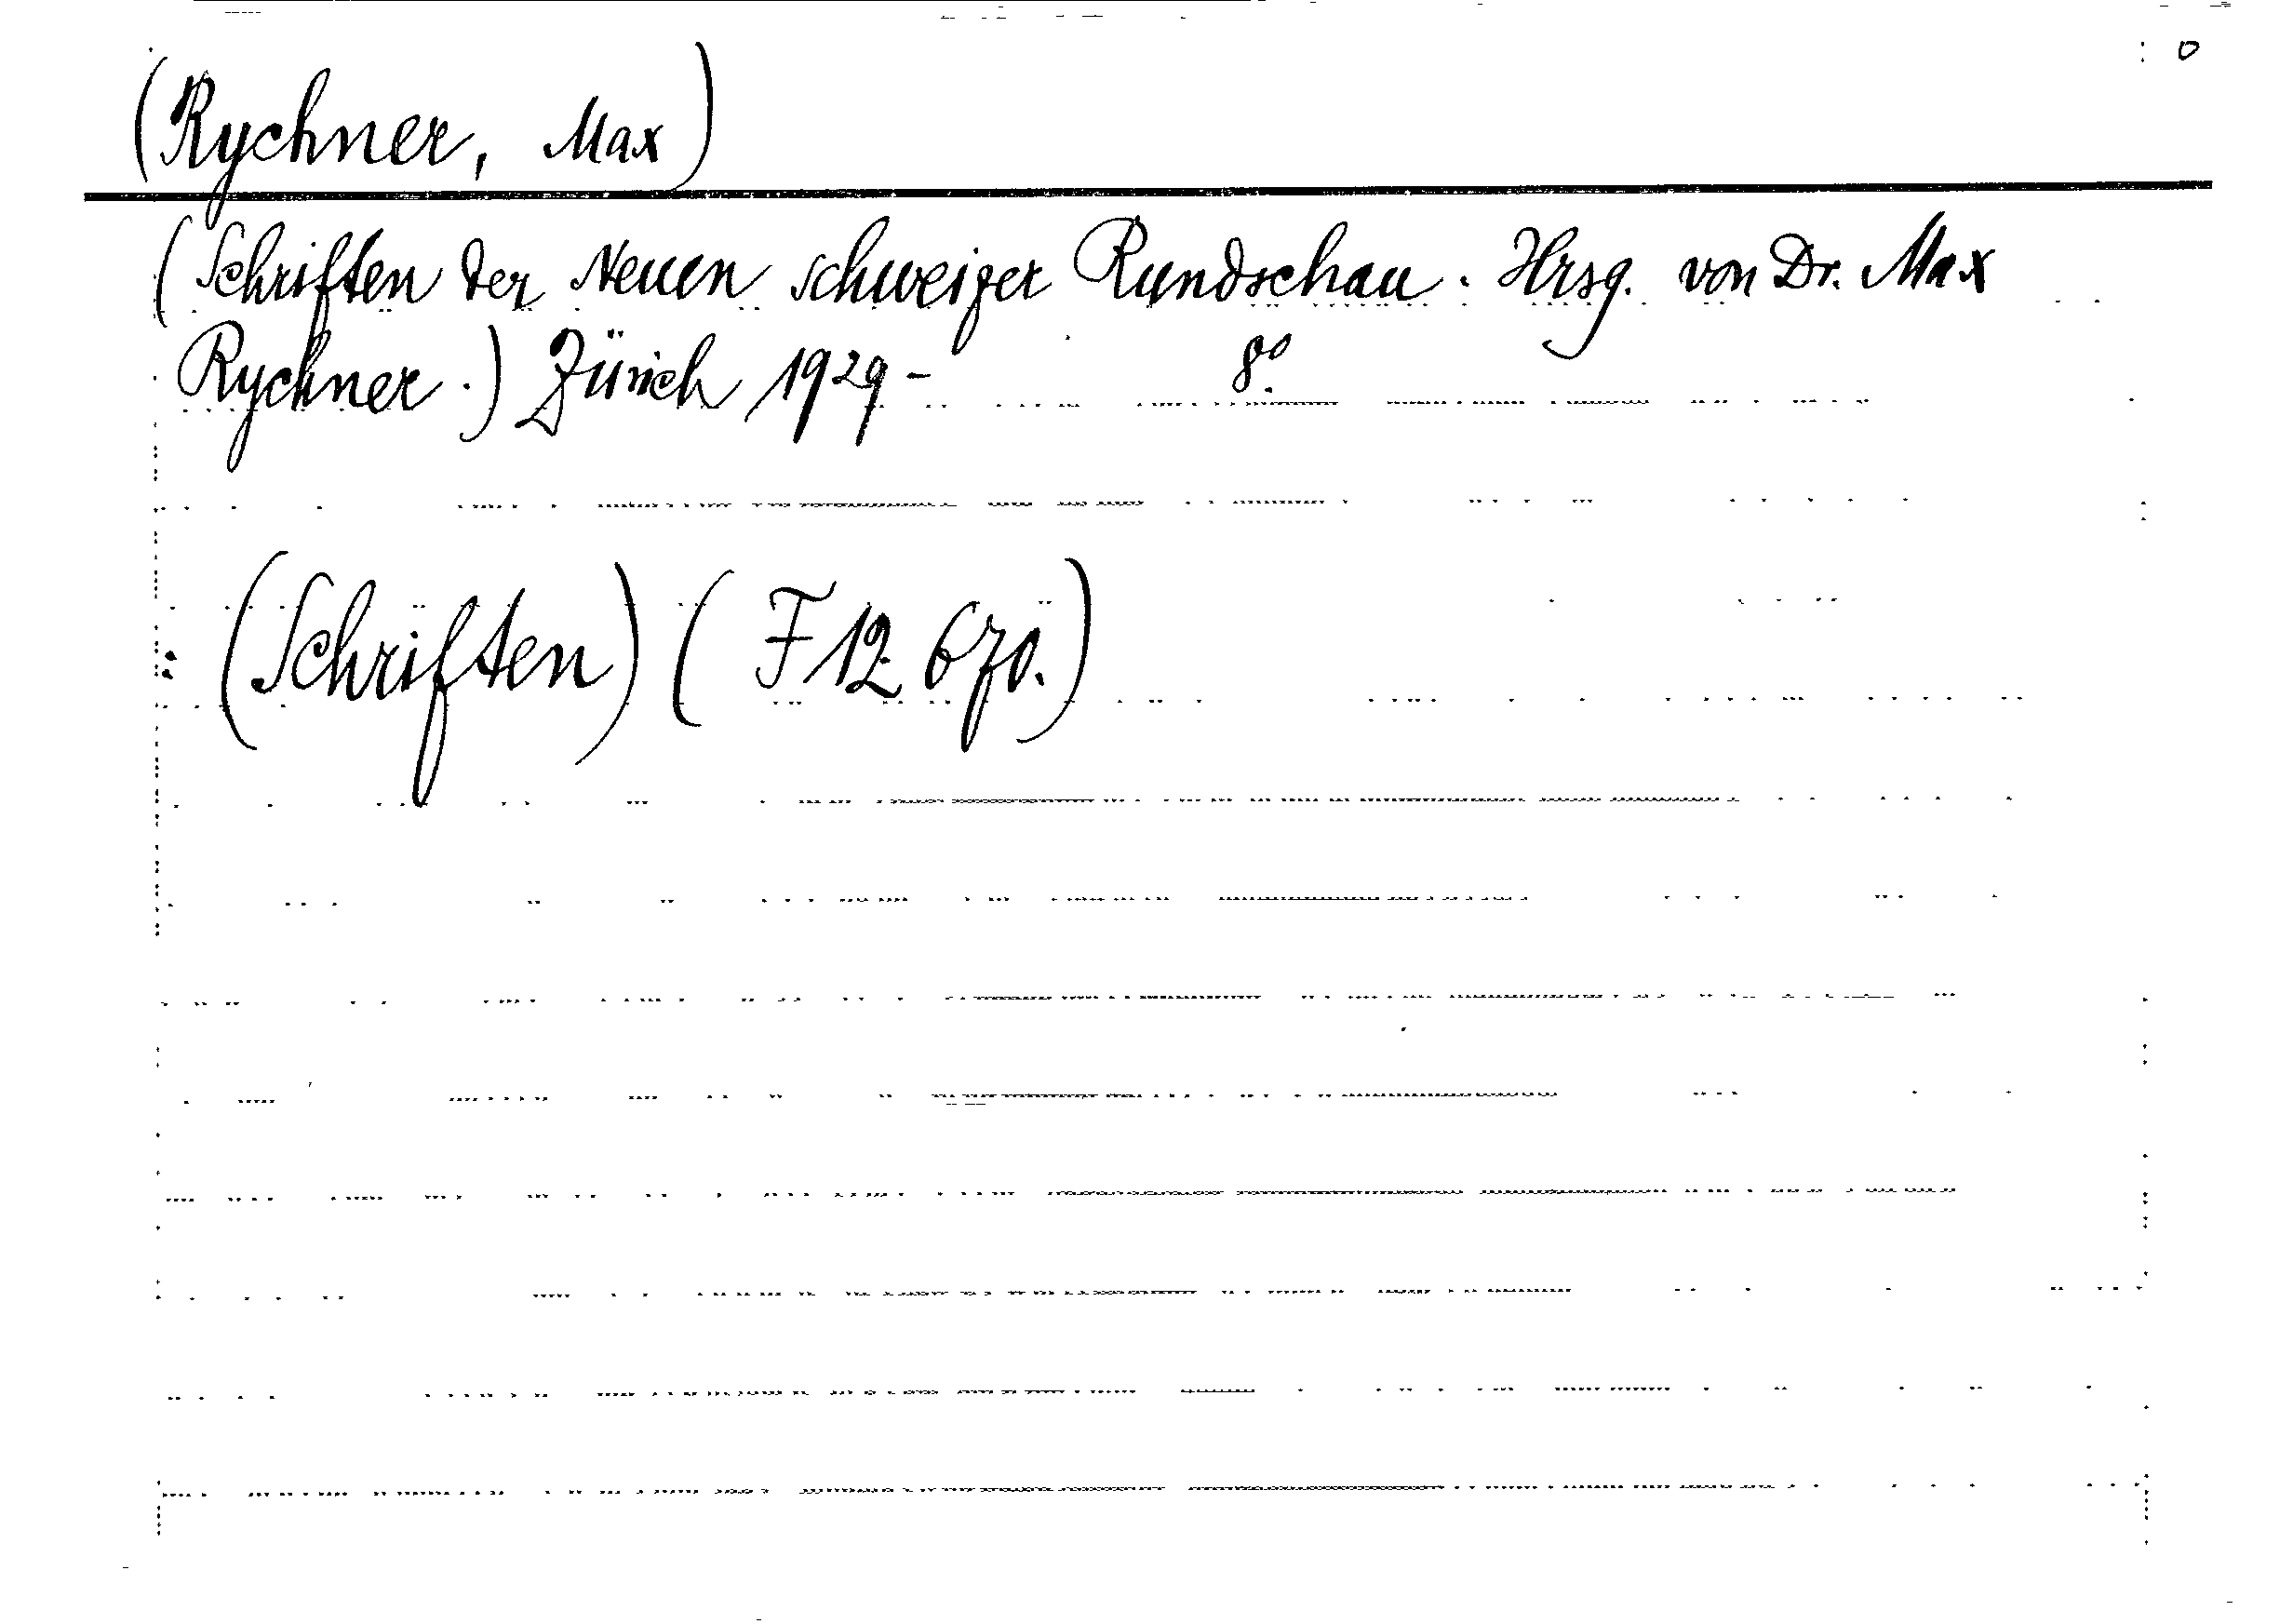 0
(Rychner, Max)
(Schriften der Neuen schweizer Rundschau. Hrsg. von Dr. Max
Rychner.) Zürich 1929- 8°.
: (Schriften) (F 12 670.)